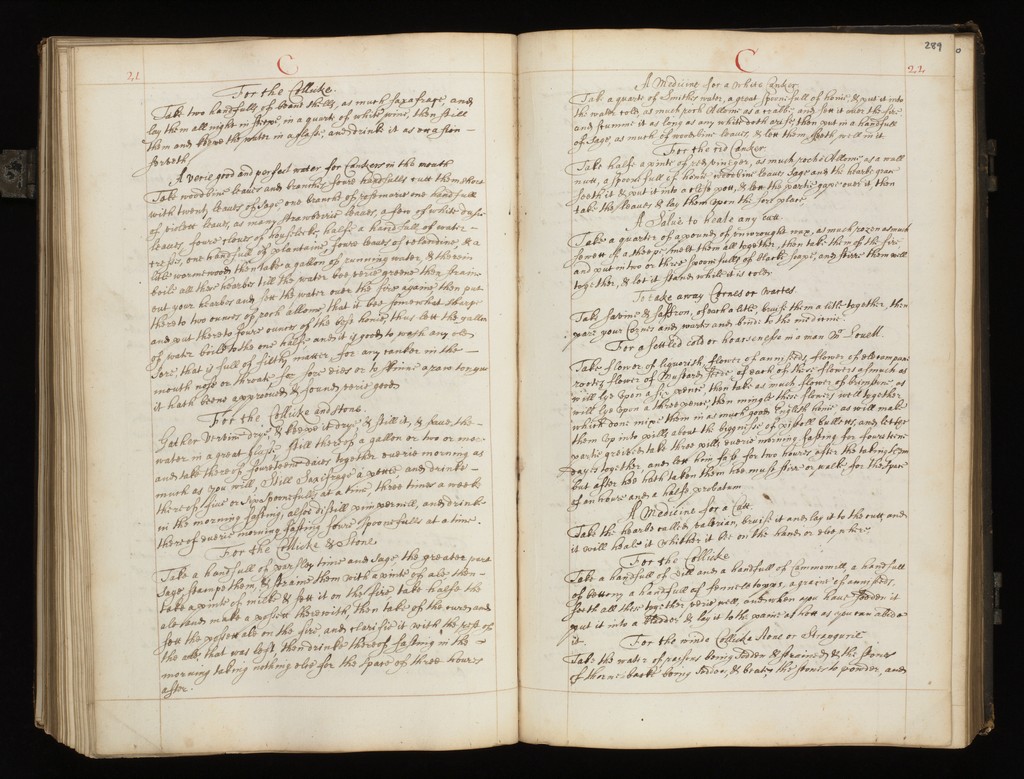 21
C
For the Collicke.
Take two handfulls of beane shells, as much saxafrage, and
lay them all night in steepe, in a quart of white wine, then still
them and keepe the water in a glasse, and drinke it as occasion
serveth
A verie good and perfect water for Cankers in the mouth
Take woodbine leaves and branches foure handfulls cutt them short
with twenty leaves of Sage one branch of rosemarie one handfull
of violett leaves, as many strawberrie leaves, a few of white
leaves, foure cloves of houseleeke, halfe a handfull of water-
cresses, one handfull of plantaine, foure leaves of celandine, & a
litle wormewood then take a gallon of running water, & therein
boile all these hearbes till the water bee verie greene then straine
out your hearbes and sett the water over the fire againe then put
thereto two ounces of roch allome, that it bee somewhat sharpe
and put thereto foure ounces of the best honie, thus lett the gallon
of water boile to the one halfe and it is good to wash any old
sore, that is full of filthy matter for any canker in the
mouth nose or throate, for sore eies or to skinne a raw tongue
it hath beene approved, & found verie good
For the Collicke and stone.
Gather dry, & keepe it dry, & still it, & save the
water in a great glasse still thereof a gallon or two or more
and take thereof fourteene daies together everie morning as
much as you will, Still Saxifrage a pottle and drinke
thereof five or sixe spoonefulls at a time, three times a weeke
in the morning fasting, also distill pimpernell, and drinke
thereof everie morning fasting foure spoonefulls at a time.
For the Collicke & Stone
Take a handfull of parsley time and Sage the greater part
Sage, stampe them, & straine them with a pinte of ale then
take a pinte of milke & sett it on the fire take halfe the
ale and make a possett therewith, then take of the curd, and
sett the possett ale on the fire, and clarifie it with the rest of
the ale that was left, then drinke thereof fasting in the
morning taking nothing else for the space of three houres
after.
289
22
C
A Medicine for a white Canker.
Take a quarte of Smithes water, a great spoonefull of honie, & put it into
the water cold, as much roch Allome as a , and sett it over the fire
and scumme it as long as any white doth arise, then put in a handfull
of Sage, as much of woodbine leaves, & lett them seeth well in it
For the red Canker
Take halfe a pinte of red vineger, as much roch Allome as a wall
nutt, a spoonefull of honie woodbine leaves Sage and the hearbe grace
seeth it & put it into a close pott, & lett the partie gape over it then
take the leaves & lay them upon the sore place,
A Salve to heale any cutt
Take a quarter of a pound of unwrought wax, as much rozen as much
sewett of a sheepe, melt them all together, then take them of the fire
and put in two or three spoonefulls of black soape, and stirre them well
together, & let it stand while it is colde
To take away Cornes or wartes
Take savine & saffron, of each a litle, bruise them a litle together, then
pare your Cornes and warts and binde to the medicine.
For a settled cold or hoarsenesse in a man Mr Lovell.
Take flower of liquorish flower of anniseeds, flower of elecompane
roots flower of mustard seede of each of these flowers as much as
will lye upon a six pence then take as much flower of brimstone as
will lye upon a three pence, then mingle these flowers well together
which done mixe them in as much good English honie as will make
them up into pills about the biggnesse of pistoll bulletts, and lett the
partie greived take three pills everie morning fasting for fourteene
daies together, and lett him fast for two houres after the taking of them
but after hee hath taken them hee must stirre or walke for the space
of an houre and a halfe probatum.
A Medicine for a Cutt.
Take the hearbe called valerian, bruise it and lay it to the cutt and
it will heale it whether it bee on the hand or elsewhere,
For the Collicke
Take a handfull of Dill and a handfull of Cammomill, a handfull
of bettony a handfull of fennell topps, a graine of anniseeds,
seeth all these together verie well, and when you have sodden it
put it into a bladder & lay it to the paine as hott as you can abide
it.
For the winde Collicke Stone or Strangurie
Take the water of reasons being sodden & strained & the stones
of thorne-backe being , & beate the stones to powder, and